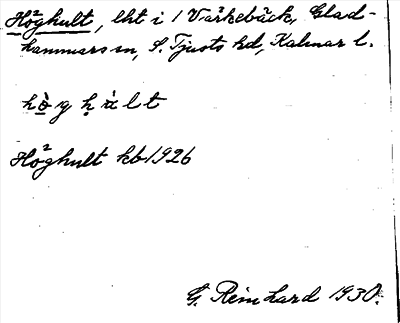 Höghult, lht i 1 Värkebäck, Glad-
hammars sn, S. Tjusts hd, Kalmar l.
hö̀g hạ̀lt
Höghult kb 1926
G. Reinhard 1930.